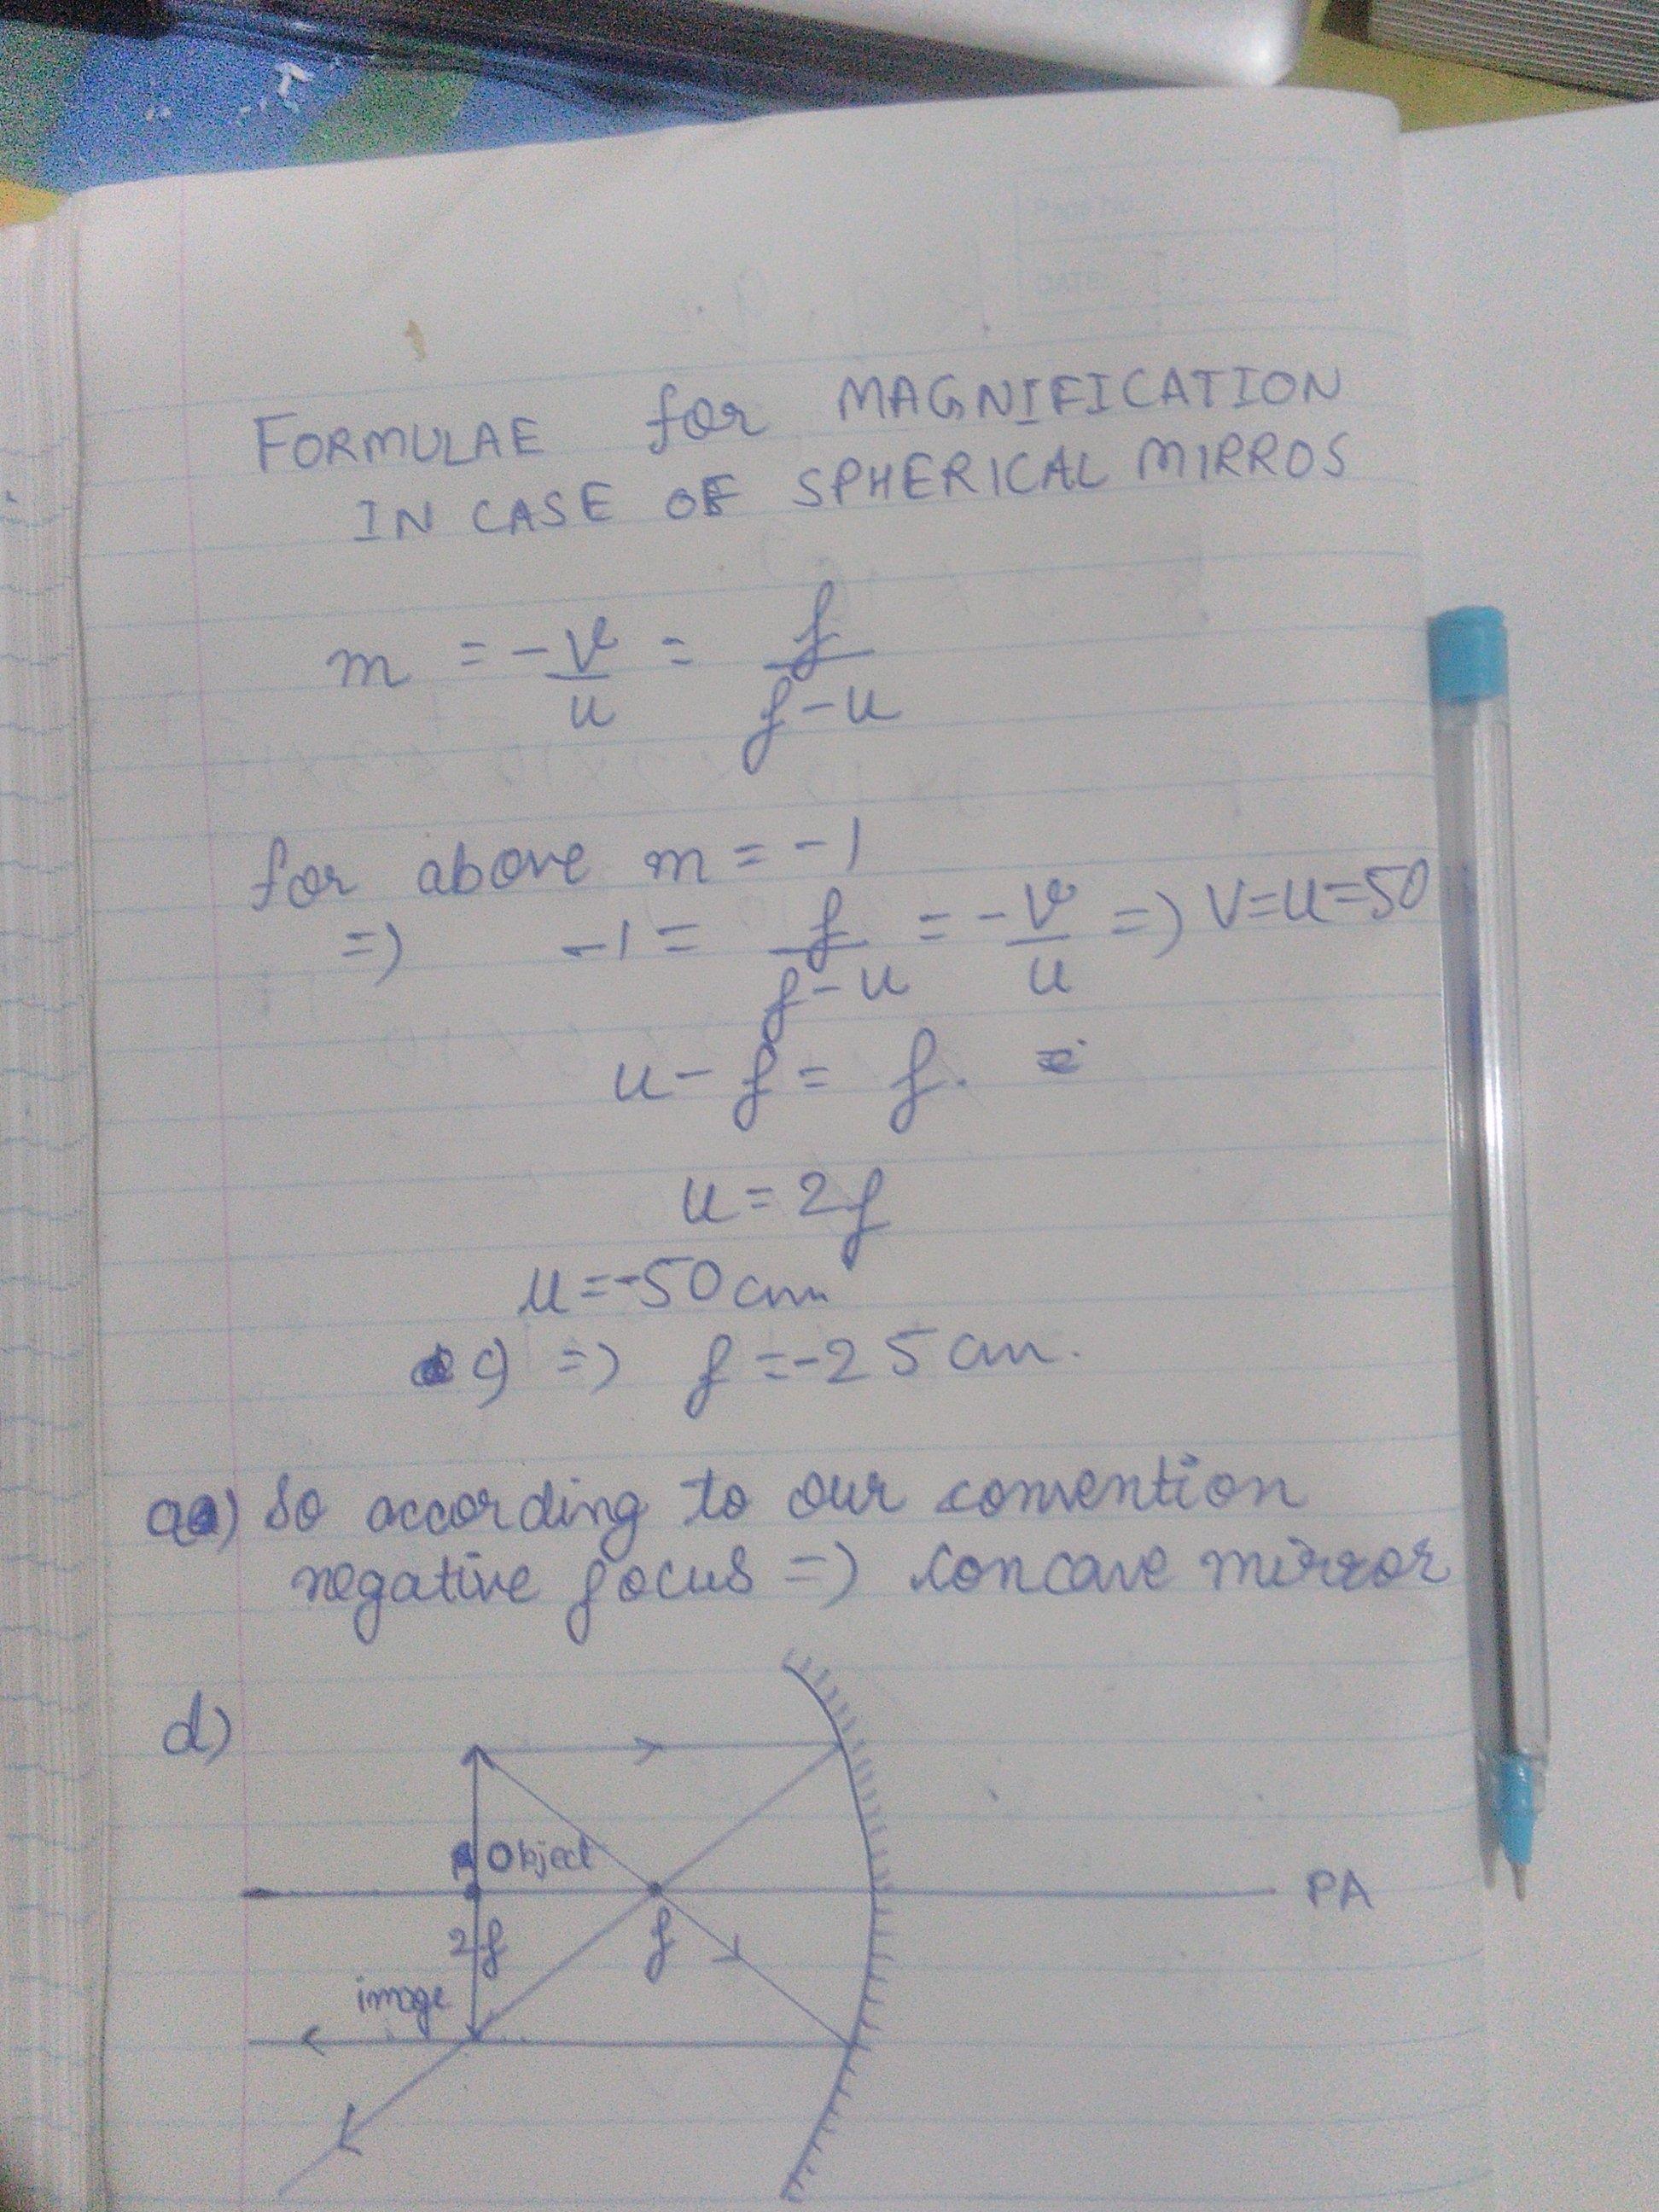 Page No.
DATE:
FORMULAE for MAGNIFICATION
IN CASE OF SPHERICAL MIRROS
m = -v/u = f/f-u
for above m = -1
=) -1 = f/f-u = -v/u =) V=u=50
u - f = f.
u = 2f
u = -50 cm
c) =) f = -25 cm.
a) So according to our convention
negative focus =) concave mirror
d)
Object
PA
2f f
image